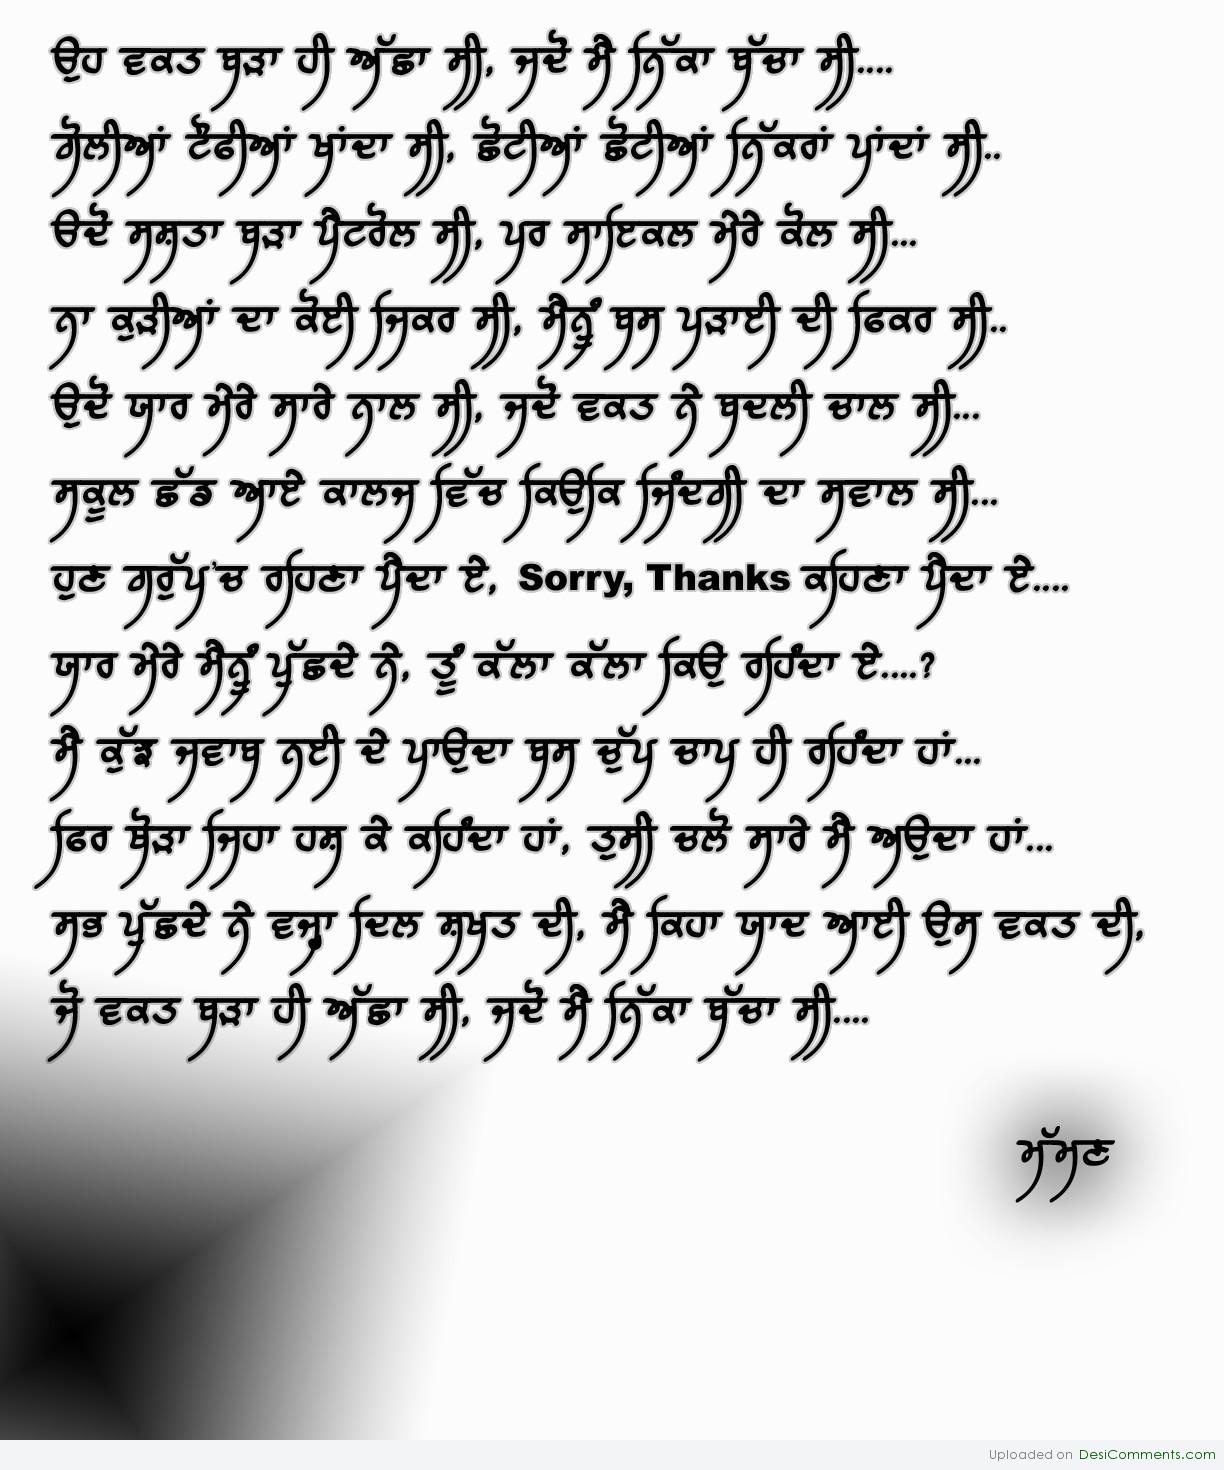 ਉਹ ਵਕਤ ਬੜਾ ਹੀ ਅੱਛਾ ਸੀ, ਜਦੋਂ ਮੈਂ ਨਿੱਕਾ ਬੱਚਾ ਸੀ....
ਗੋਲੀਆਂ ਟੌਫੀਆਂ ਖਾਂਦਾ ਸੀ, ਛੋਟੀਆਂ ਛੋਟੀਆਂ ਨਿੱਕਰਾਂ ਪਾਂਦਾਂ ਸੀ..
ਓਦੋਂ ਸਸ਼ਤਾ ਬੜਾ ਪੈਟਰੋਲ ਸੀ, ਪਰ ਸਾਇਕਲ ਮੇਰੇ ਕੋਲ ਸੀ...
ਨਾ ਕੁੜੀਆਂ ਦਾ ਕੋਈ ਜਿਕਰ ਸੀ, ਮੈਨੂੰ ਬਸ ਪੜਾਈ ਦੀ ਫਿਕਰ ਸੀ..
ਉਦੋਂ ਯਾਰ ਮੇਰੇ ਸਾਰੇ ਨਾਲ ਸੀ, ਜਦੋਂ ਵਕਤ ਨੇ ਬਦਲੀ ਚਾਲ ਸੀ...
ਸਕੂਲ ਛੱਡ ਆਏ ਕਾਲਜ ਵਿੱਚ ਕਿਉਂਕਿ ਜਿੰਦਗੀ ਦਾ ਸਵਾਲ ਸੀ...
ਹੁਣ ਗਰੁੱਪ'ਚ ਰਹਿਣਾ ਪੈਂਦਾ ਏ, Sorry, Thanks ਕਹਿਣਾ ਪੈਂਦਾ ਏ....
ਯਾਰ ਮੇਰੇ ਮੈਨੂੰ ਪੁੱਛਦੇ ਨੇ, ਤੂੰ ਕੱਲਾ ਕੱਲਾ ਕਿਉਂ ਰਹਿੰਦਾ ਏ....?
ਮੈਂ ਕੁੱਝ ਜਵਾਬ ਨਈ ਦੇ ਪਾਉਂਦਾ ਬਸ ਚੁੱਪ ਚਾਪ ਹੀ ਰਹਿੰਦਾ ਹਾਂ...
ਫਿਰ ਥੋੜਾ ਜਿਹਾ ਹਸ਼ ਕੇ ਕਹਿੰਦਾ ਹਾਂ, ਤੁਸੀਂ ਚਲੋ ਸਾਰੇ ਮੈਂ ਅਉਂਦਾ ਹਾਂ...
ਸਭ ਪੁੱਛਦੇ ਨੇ ਵਜ੍ਹਾ ਦਿਲ ਸ਼ਖਤ ਦੀ, ਮੈਂ ਕਿਹਾ ਯਾਦ ਆਈ ਉਸ ਵਕਤ ਦੀ,
ਜੋ ਵਕਤ ਬੜਾ ਹੀ ਅੱਛਾ ਸੀ, ਜਦੋਂ ਮੈਂ ਨਿੱਕਾ ਬੱਚਾ ਸੀ....
ਮੱਮਣ
Uploaded on DesiComments.com